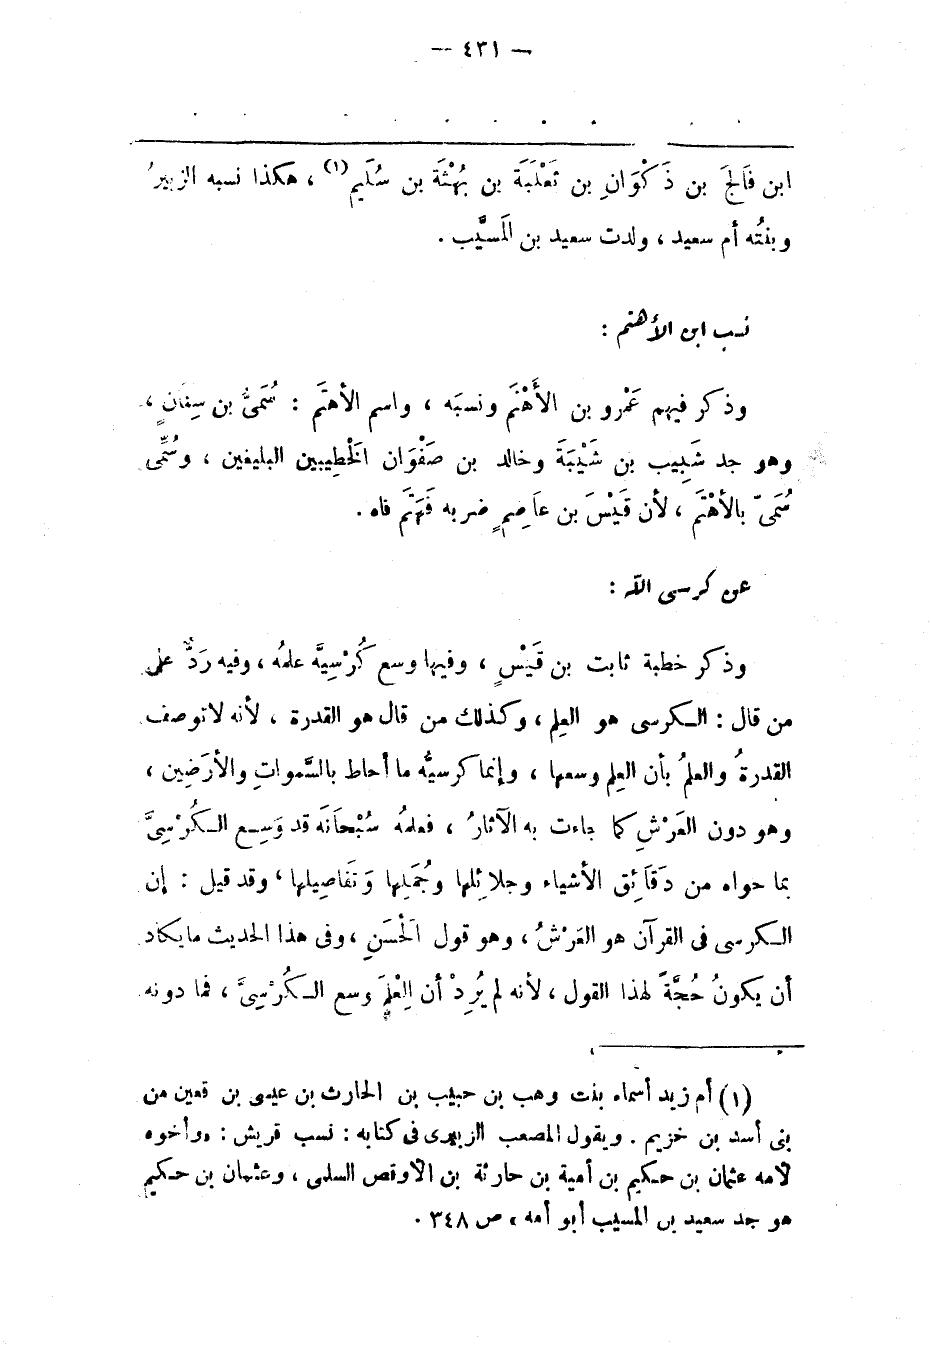 — ٤٣١ —
ابن فَالَجَ بن ذَكْوَانِ بن ثَعْلَبَة بن بُهْثَة بن سُلَيم(١) ، هكذا نسبه الزبيرُ
وبنتُه أم سعيد ، ولدت سعيد بن المَسيَّب .
نسب ابن الأهتم :
وذكر فيهم عَمْرو بن الأَهْتَم ونسبَه ، واسم الأهتَم : سُمَىُّ بن سِنَانٍ ،
وهو جد شَبِيب بن شَيْبَةَ وخالد بن صَفْوَان الخَطِيبين البليغين ، وسُمِّى
سُمَىّ بالأهْتَم ، لأن قَيْسَ بن عاَصِمٍ ضربه فَهَتَم فاه .
عن كرسى اللّه :
وذكر خطبة ثابت بن قَيْسٍ ، وفيها وسع كُرْسِيَّه علمُه ، وفيه رَدٌّ على
من قال : الكرسى هو العِلم ، وكذلك من قال هو القدرة ، لأنه لا توصف
القدرةُ والعلمُ بأن العِلم وسعها ، وإنما كرسيُّه ما أحاط بالسَّمواتِ والأرَضِين ،
وهو دون العَرْشِ كما جاءت به الآثارُ ، فعلمُه سُبْحَانَه قد وَسِع الكُرْسِىَّ
بما حواه من دَقَائِق الأشياء وجلائِلها وجُمَلِها وَتَفَاصِيلها ، وقد قيل : إن
الكرسى فى القرآن هو العَرْشُ ، وهو قول الحَسَنِ ، وفى هذا الحديث ما يكاد
أن يكونُ حُجَّةً لهذا القول ، لأنه لم يُرِدْ أن العِلْمَ وسع الكُرْسِىَّ ، فما دونه
(١) أم زيد أسماء بنت وهب بن حبيب بن الحارث بن عيسى بن قعين من
بنى أسد بن خزيم . ويقول المصعب الزبيرى فى كتابه : نسب قريش : «وأخوه
لأمه عثمان بن حكيم بن أمية بن حارثة بن الأوقص السلمى ، وعثمان بن حكيم
هو جد سعيد بن المسيب أبو أمه » ص ٣٤٨ .